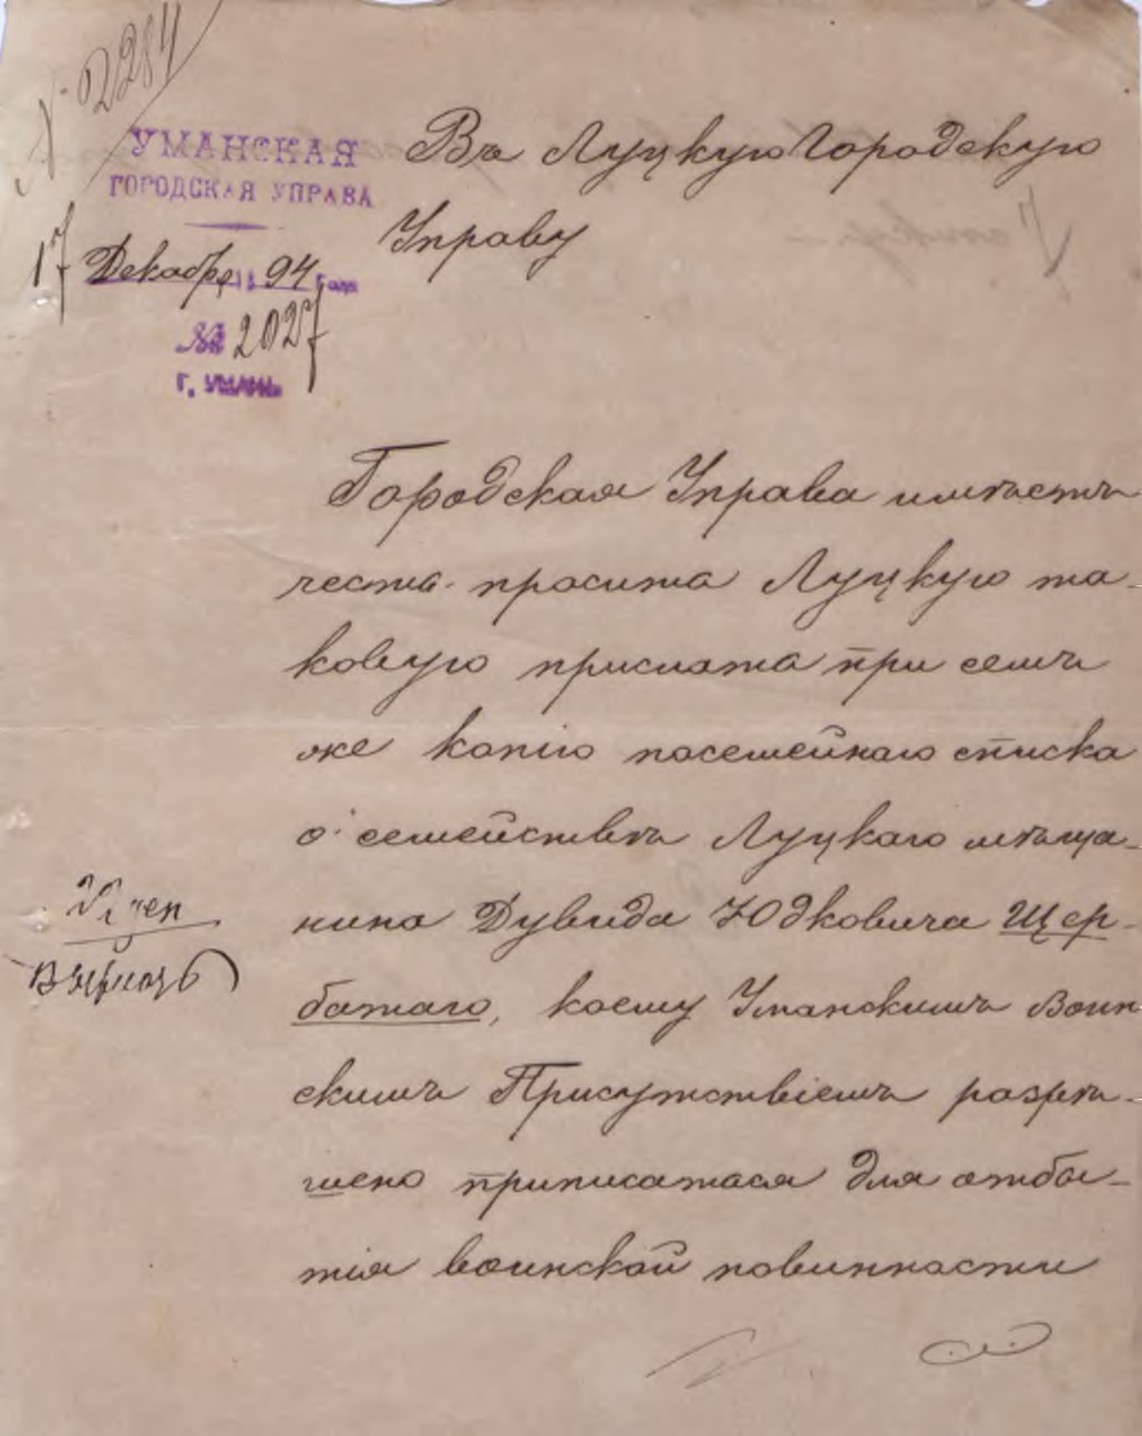 № 2284
УМАНСКАЯ
ГОРОДСКАЯ УПРАВА
17 Декабря 1894 года
№ 2027
Г. УМАНЬ
Въ Луцкую Городскую
Управу
Городская Управа имѣетъ
честь просить Луцкую та-
ковую прислать при семъ
же копію посемейнаго списка
о семействѣ Луцкаго мѣща-
нина Дувида Юдковича Щер-
батаго, коему Уманскимъ Воин
скимъ Присутствіемъ разрѣ-
шено приписаться для отбы-
тія воинской повинности